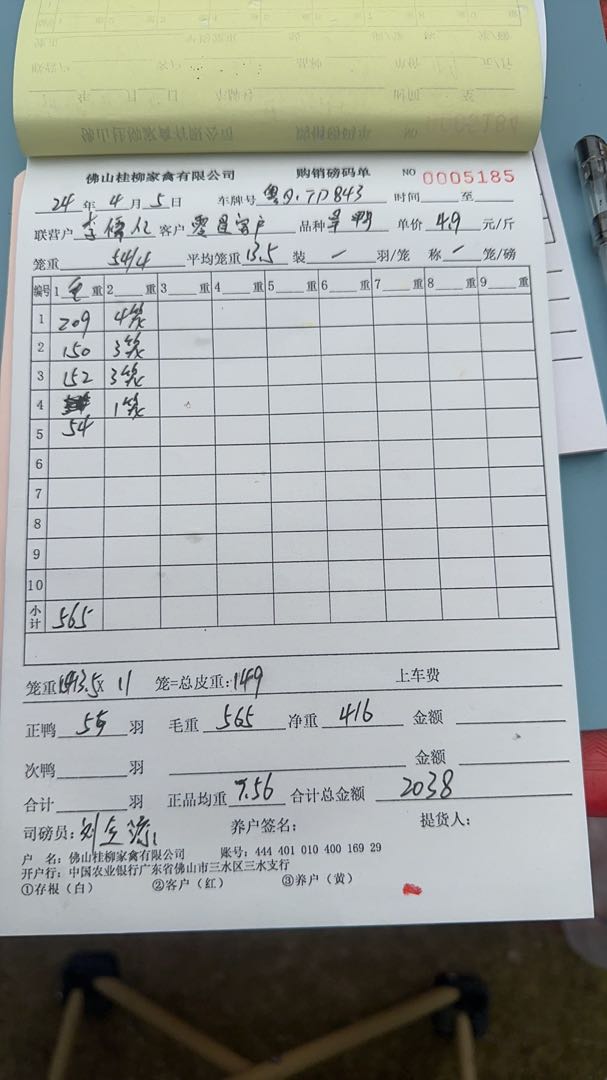 佛山桂柳家禽有限公司 购销磅码单 NO 0005185
24 年 4 月 5 日 车牌号 时间 至
联营户 李 客户 零星客户 品种 鸭 单价 4.9 元/斤
笼重 54/4 平均笼重 13.5 装 — 羽/笼 称 — 笼/磅
编号 1 毛 重 2 重 3 重 4 重 5 重 6 重 7 重 8 重 9 重
1 209 4笼
2 150 3笼
3 152 3笼
4 1笼
5 54
6
7
8
9
10
小计 565
笼重 13.5 x 11 笼=总皮重: 149 上车费
正鸭 55 羽 毛重 565 净重 416 金额
次鸭 羽 金额
合计 羽 正品均重 7.56 合计总金额 2038
司磅员: 刘 养户签名: 提货人:
户 名: 佛山桂柳家禽有限公司 账号: 444 401 010 400 169 29
开户行: 中国农业银行广东省佛山市三水区三水支行
①存根（白） ②客户（红） ③养户（黄）